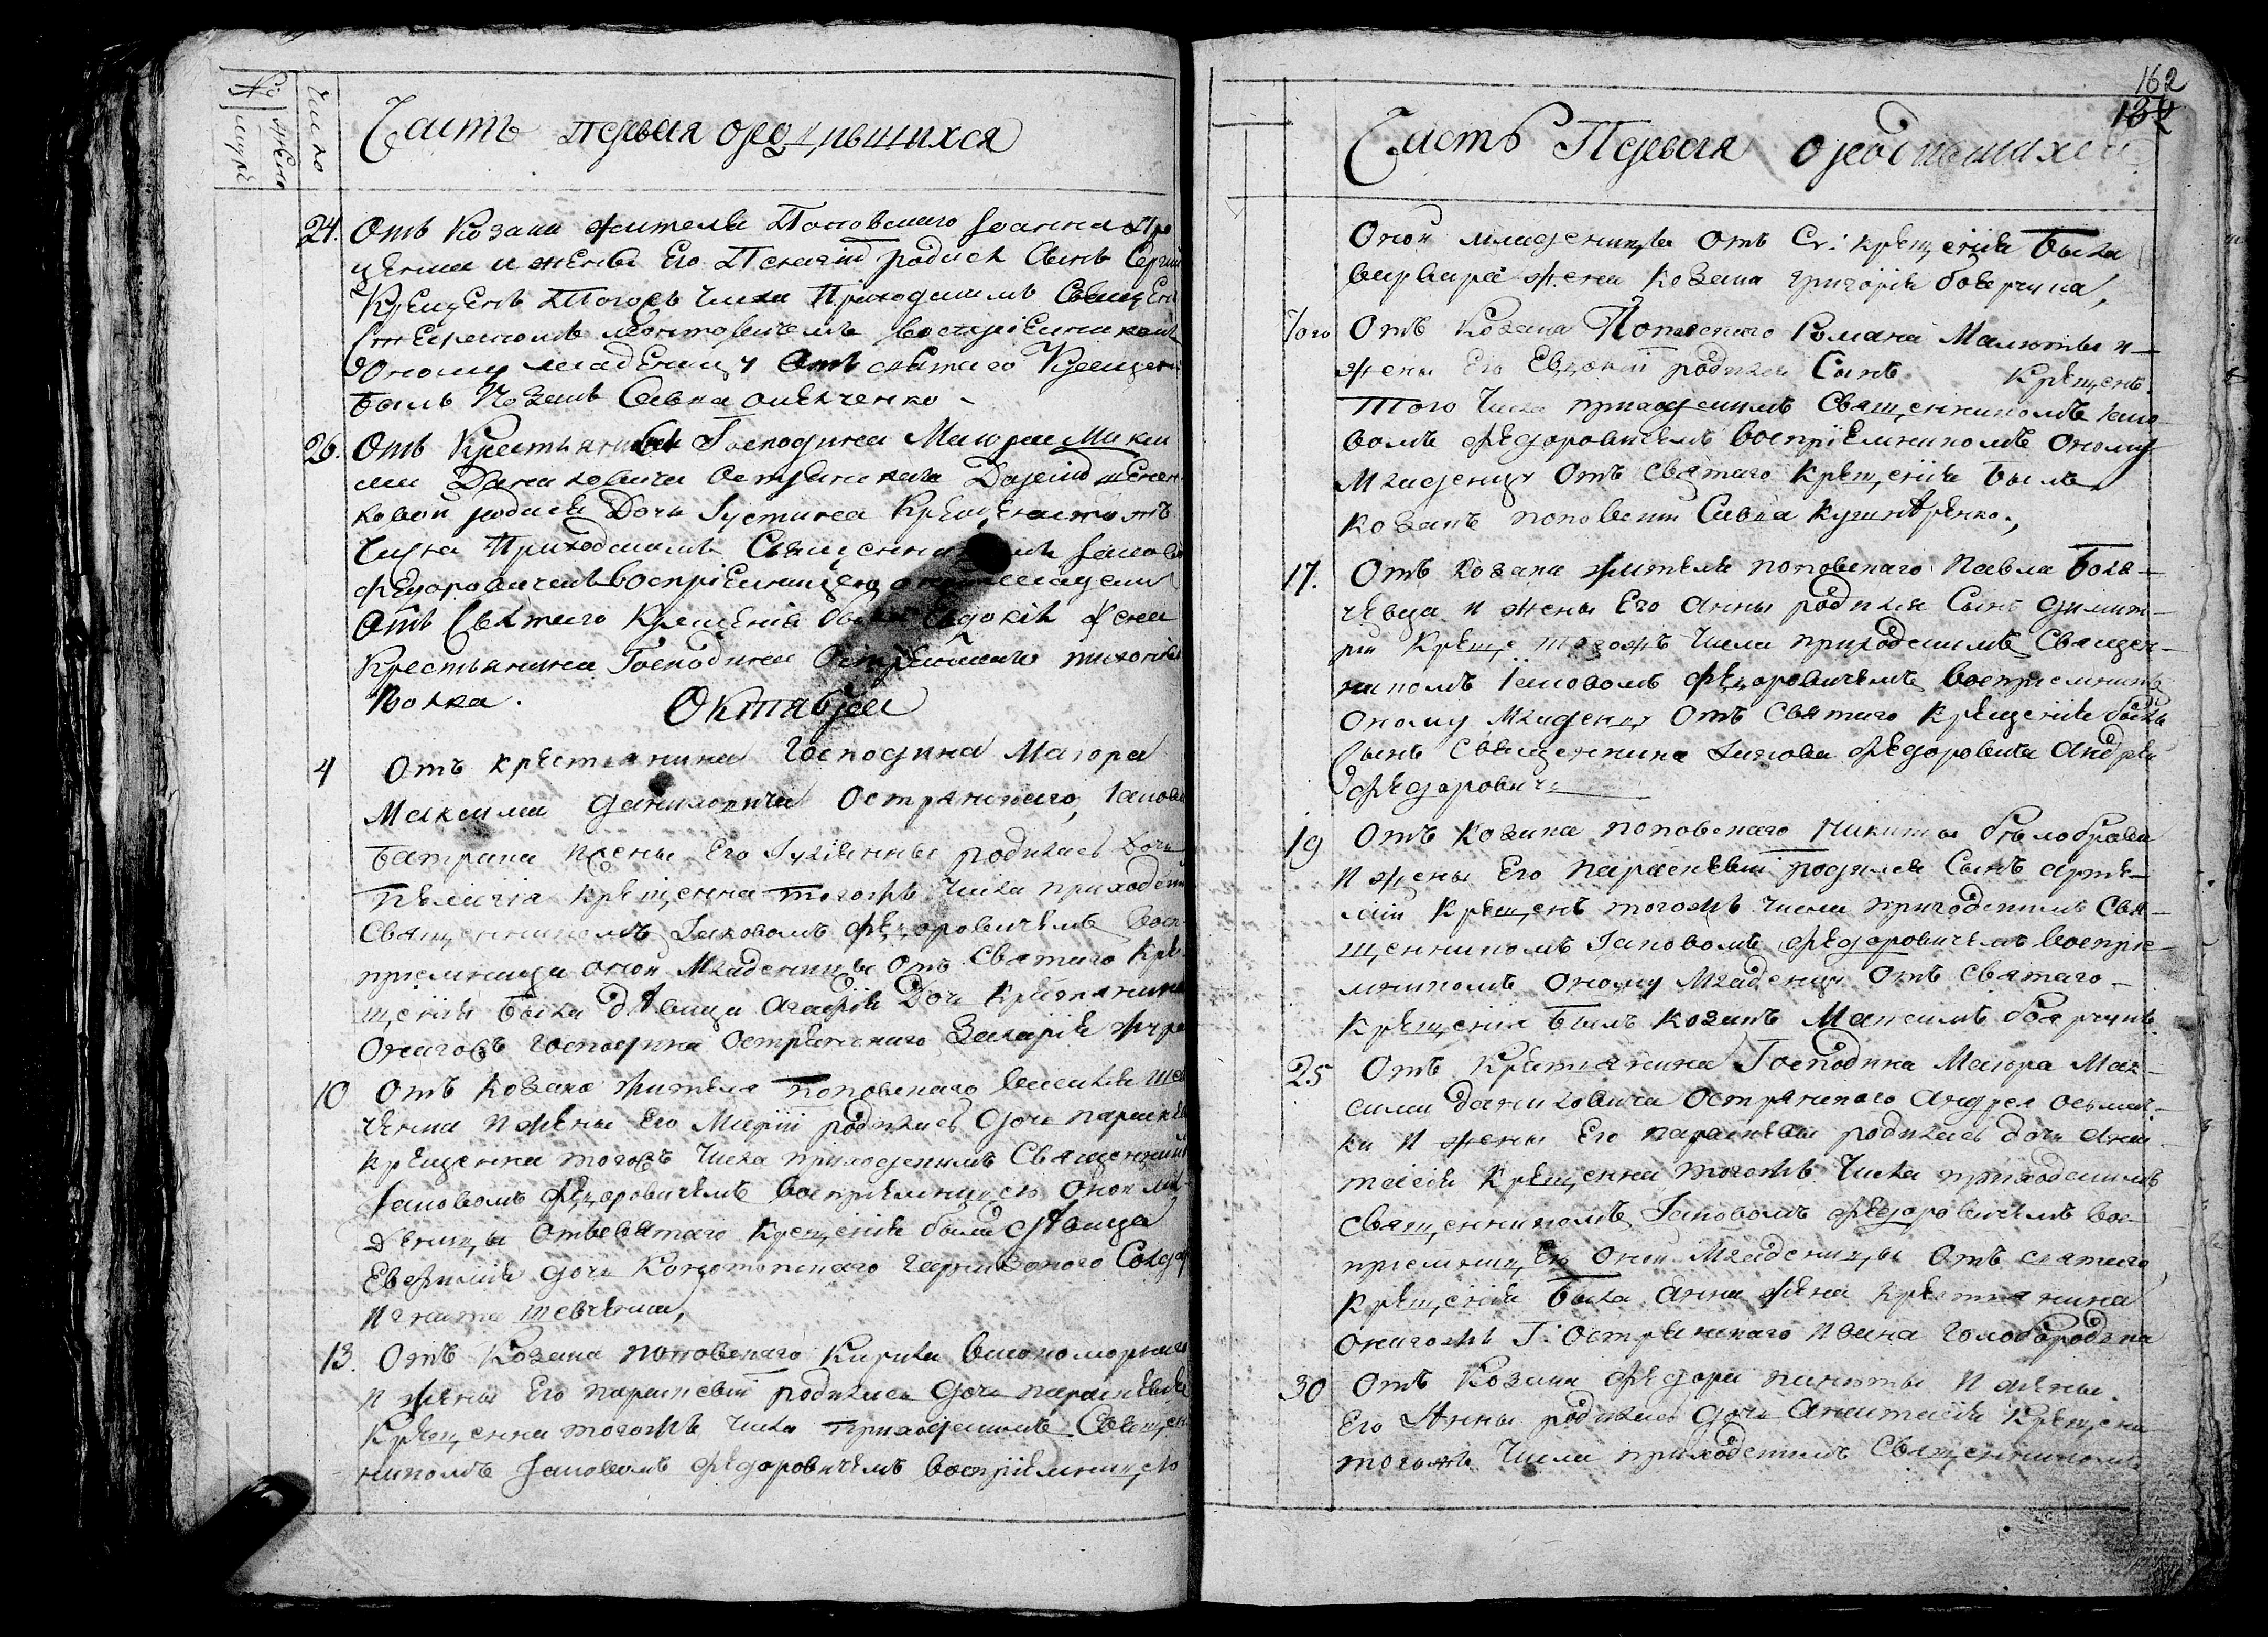 Часть первая о родившихся
№
мужеска
женска
Число
24. Отъ козака жителя Поповского Іоанна
ценка и жены Его Пелагіи родися Сынъ Сергій
Крещенъ Тогожъ Числа Приходскимъ Священ
воспріемникомъ
Оному младенцу Отъ святаго Крещенія
былъ Козакъ Савва
26. Отъ Крестьянки Господина Маіора Макси
ма Даниловича Острянского Даріи Шевч
ковой родися Дочь Іустина Крещена тогожъ
Числа Приходскимъ Священникомъ Іаковомъ
Федоровичемъ воспріемницею младен
Отъ Святаго Крещенія была Евдокія жена
Крестьянина Господина Острянского
Волка.
Октября
4 Отъ крестьянина Господина Маіора
Максима Даниловича Острянского, Іакова
Батрака и жены Его Іуліянны родилась Дочь
Пелагія крещенна тогожъ числа приходским
Священникомъ Іаковомъ Федоровичемъ вос
пріемница оной Младеницы Отъ Святаго Кре
щенія была дѣвица Агафія Дочь Крестянина
Онагожъ Господина Острянского Захарія
10 Отъ Козака жителя поповского Василія Шев
ченка и жены Его Маріи родилась Дочь параскев
крещенна тогожъ Числа приходскимъ Священник
Іаковомъ Федоровичемъ воспріемницею Оной мла
деницы Отъ святаго Крещенія была дѣвица
Евфимія дочь Конотопского гарнизоного Солда
Игната Шевченка,
13. Отъ Козака поповского Кирила
и жены Его параскевіи родилась Дочь параскевія
Крещенна тогожъ Числа приходскимъ Священ
никомъ Іаковомъ Федоровичемъ воспріемницею
162
Часть Первая о родившихся
Оной младеницы Отъ Св: крещенія была
варвара жена козака григорія боярчика,
Того Отъ Козака Поповского Романа Малюты и
жены Его Евдокіи родился Сынъ Крещенъ
Того Числа приходскимъ Священникомъ Іако
вомъ Федоровичемъ воспріемникомъ оному
Младенцу Отъ Святаго Крещенія былъ
козакъ поповскій Савва
17. Отъ козака жителя поповского Павла
и жены Его Анны родился Сынъ Димит
рій Креще тогожъ Числа приходскимъ Священ
никомъ Іаковомъ Федоровичемъ воспріемник
Оному Младенцу Отъ Святаго Крещенія былъ
Сынъ Священника Іакова Федоровича Андрей
Федоровичъ
19 Отъ Козака поповского Никиты бѣлобрава
и жены Его параскевіи родился Сынъ Арте
мій Крещенъ тогожъ Числа приходскимъ Свя
щенникомъ Іаковомъ Федоровичемъ воспріе
мникомъ Оному Младенцу Отъ Святаго
Крещенія былъ козакъ Максимъ боярчикъ.
25 Отъ Крестянина Господина Маіора Мак
сима Даниловича Острянского Андрея осьмач
ки и жены Его параскевіи родилась дочь Анас
тасія Крещенна тогожъ Числа приходскимъ
Священникомъ Іаковомъ Федоровичемъ вос
пріемницею Оной Младеницы Отъ святаго
Крещенія была Анна Жена крестянина
Онагожъ Г: Острянского Ивана голобородка
30 Отъ Козака Федора и жены
Его Анны родилась Дочь Анастасія Крещена
тогожъ Числа приходскимъ Священникомъ